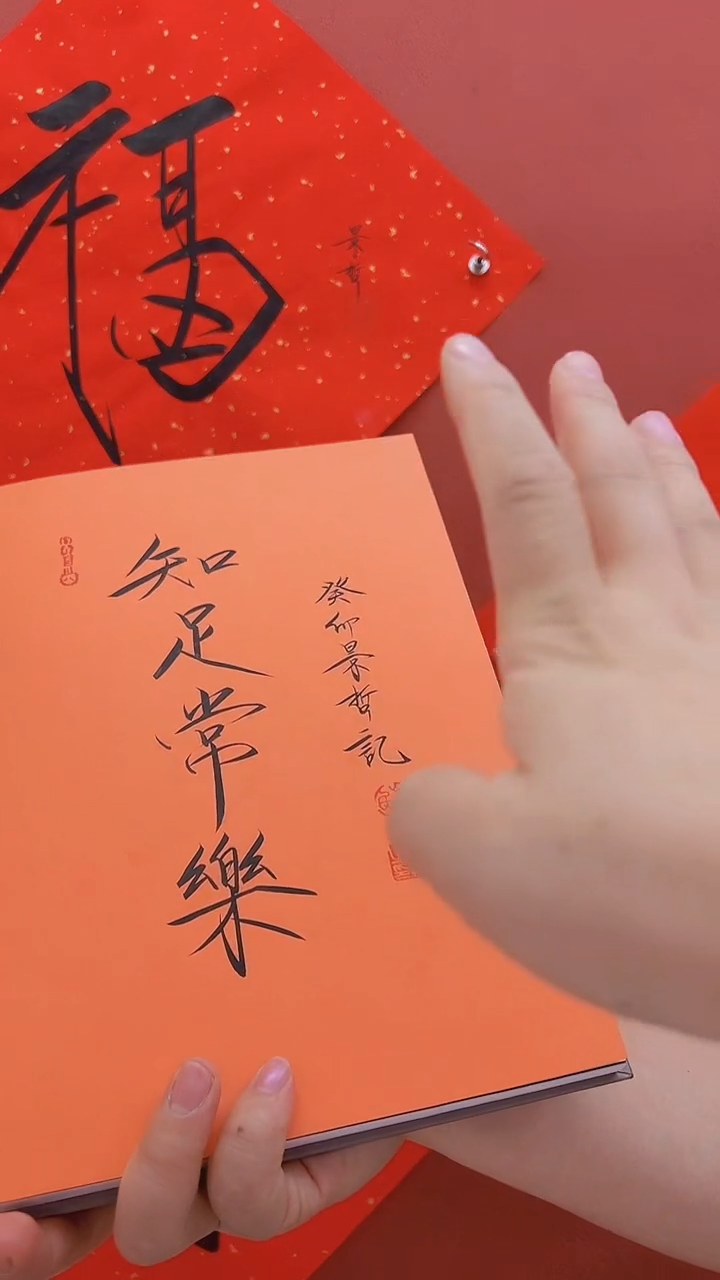 福
景哲
知足常樂
癸卯景哲記